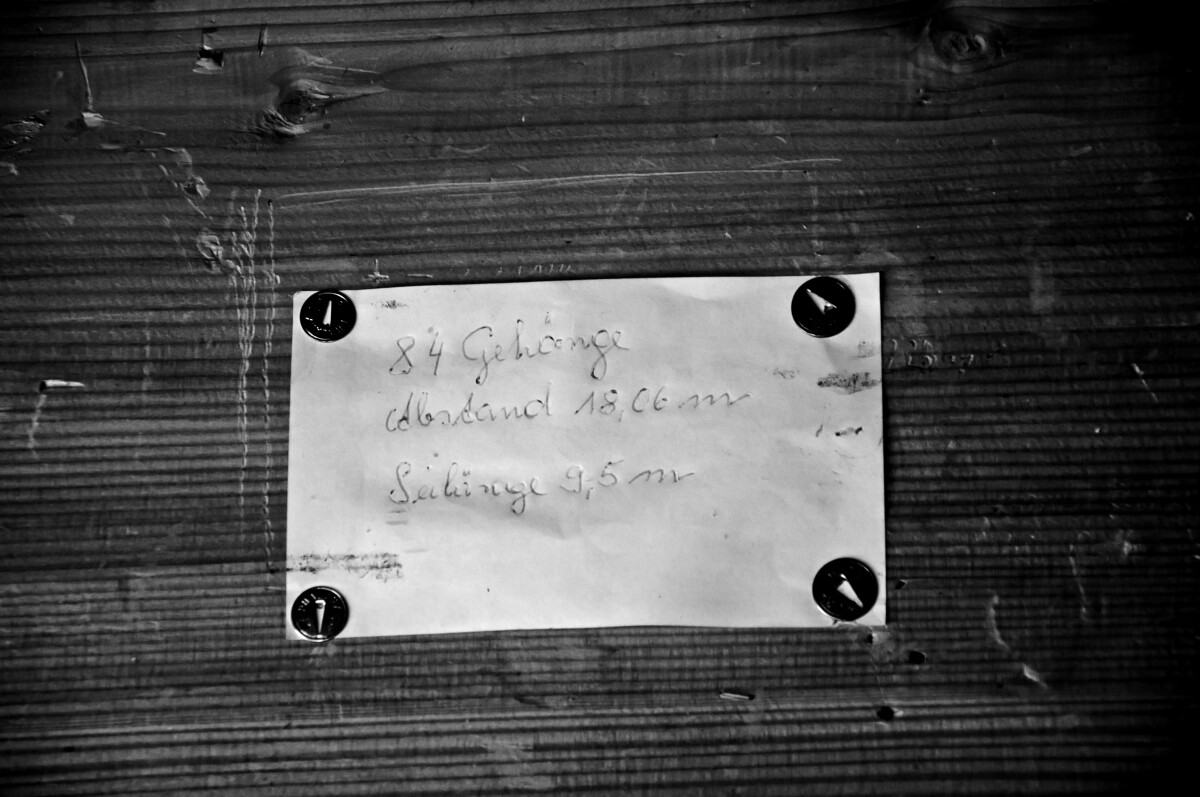 84 Gehänge
Abstand 18,06 m
9,5 m